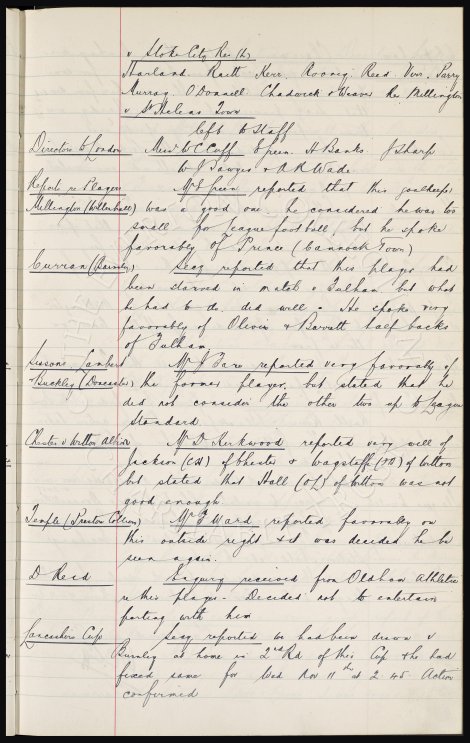 v Stoke City Res (h)
Harland. Raitt Kerr. Rooney. Read. Virr. Parry
Murray. O'Donnell Chadwick & Weaver Res Millington
v St Helens Town
left to Staff
Directors to London Messrs W C Cuff E Green. H Banks J Sharp
W J Sawyer & A R Wade.
Reports re Players Mr E Green reported that this goalkeeper
Millington (Willenhall) was a good one. he considered he was too
small for League football, but he spoke
favorably of Prince (Cannock Town)
Curran (Barnsley) Secy reported that this player had
been starved in match v Fulham but what
he had to do, did well. He spoke very
favorably of Oliver & Barrett half backs
of Fulham.
Sissons Lambert Mr J Fare reported very favorably of
& Buckley (Doncaster) the former player, but stated that he
did not consider the other two up to League
Standard
Chester v Witton Albion Mr D Kirkwood reported very well of
Jackson (CH) of Chester & Wagstaff of Witton
but stated that Hall (OL) of Witton was not
good enough
Temple (Preston Colliery) Mr F Ward reported favorably on
this outside right & it was decided he be
seen again.
D Reid Enquiry received from Oldham Athletic
re this player. Decided not to entertain
parting with him
Lancashire Cup Secy reported we had been drawn v
Burnley at home in 2nd Rd of this Cup & he had
fixed same for Wed Nov 11th at 2.45 Action
confirmed